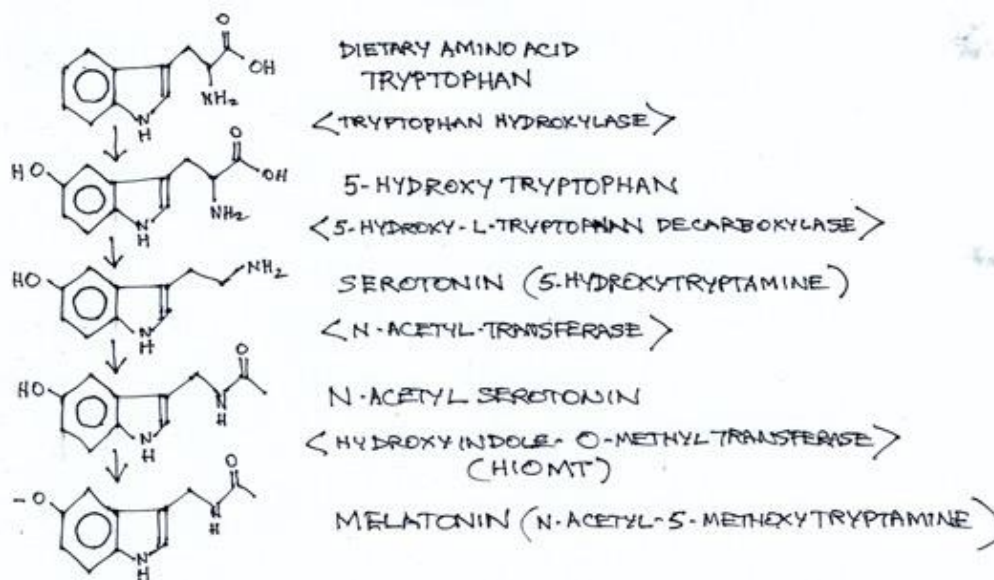 O
OH
NH₂
N
H
DIETARY AMINO ACID
TRYPTOPHAN
<TRYPTOPHAN HYDROXYLASE>
HO
O
OH
NH₂
N
H
5-HYDROXY TRYPTOPHAN
<5-HYDROXY-L-TRYPTOPHAN DECARBOXYLASE>
HO
NH₂
N
H
SEROTONIN (5-HYDROXYTRYPTAMINE)
<N-ACETYL-TRANSFERASE>
HO
O
N
H
N
H
N-ACETYL SEROTONIN
<HYDROXYINDOLE-O-METHYL TRANSFERASE>
(HIOMT)
-O
O
N
H
N
H
MELATONIN (N-ACETYL-5-METHOXYTRYPTAMINE)